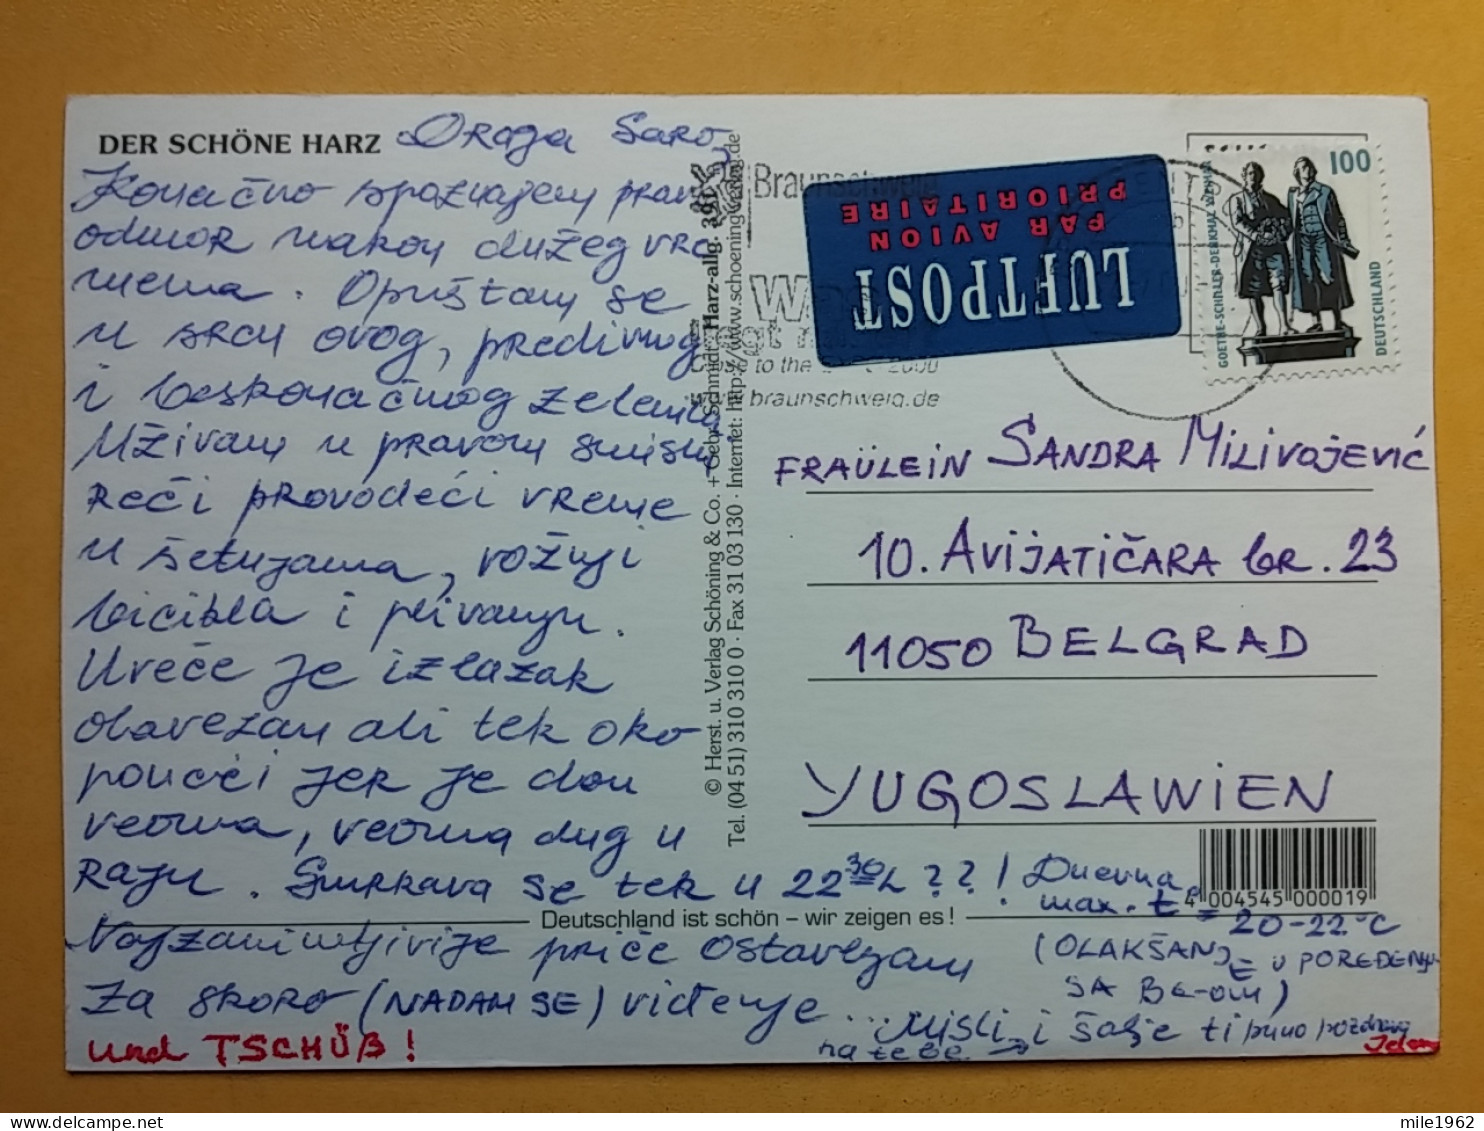 DER SCHÖNE HARZ
Draga Saro,
Konačno spoznajem pravi
odmor nakon dužeg vre
mena. Opuštam se
u srcu ovog, predivnog
i beskonačnog zelenila.
Uživam u pravom smislu
reči provodeći vreme
u šetnjama, vožnji
bicikla i plivanju.
Uveče je izlazak
obavezan ali tek oko
ponoći jer je dan
veoma, veoma dug u
raju. Smrkava se tek u 22³⁰h ??!
Najzanimljivije priče ostavljam
za skoro (NADAM SE) viđenje...
und TSCHÜß!
Dnevna
max. t° = 20-22°C
(OLAKŠANJE U POREĐENJU
SA BG-om)
Misli na tebe → i šalje ti puno pozdrava
Jelena
© Herst. u. Verlag Schöning & Co. + Gebr. Schmidt · Harz-allg. 391
Tel. (04 51) 310 310 0 · Fax 31 03 130 · Internet: http://www.schoening-verlag.de
Braunschweig
Close to the 2000
www.braunschweig.de
LUFTPOST
PAR AVION
PRIORITAIRE
100
GOETHE-SCHILLER-DENKMAL WEIMAR
DEUTSCHLAND
FRAÜLEIN SANDRA MILIVOJEVIĆ
10. AVIJATIČARA br. 23
11050 BELGRAD
YUGOSLAWIEN
4 004545 000019
Deutschland ist schön – wir zeigen es!
mile1962